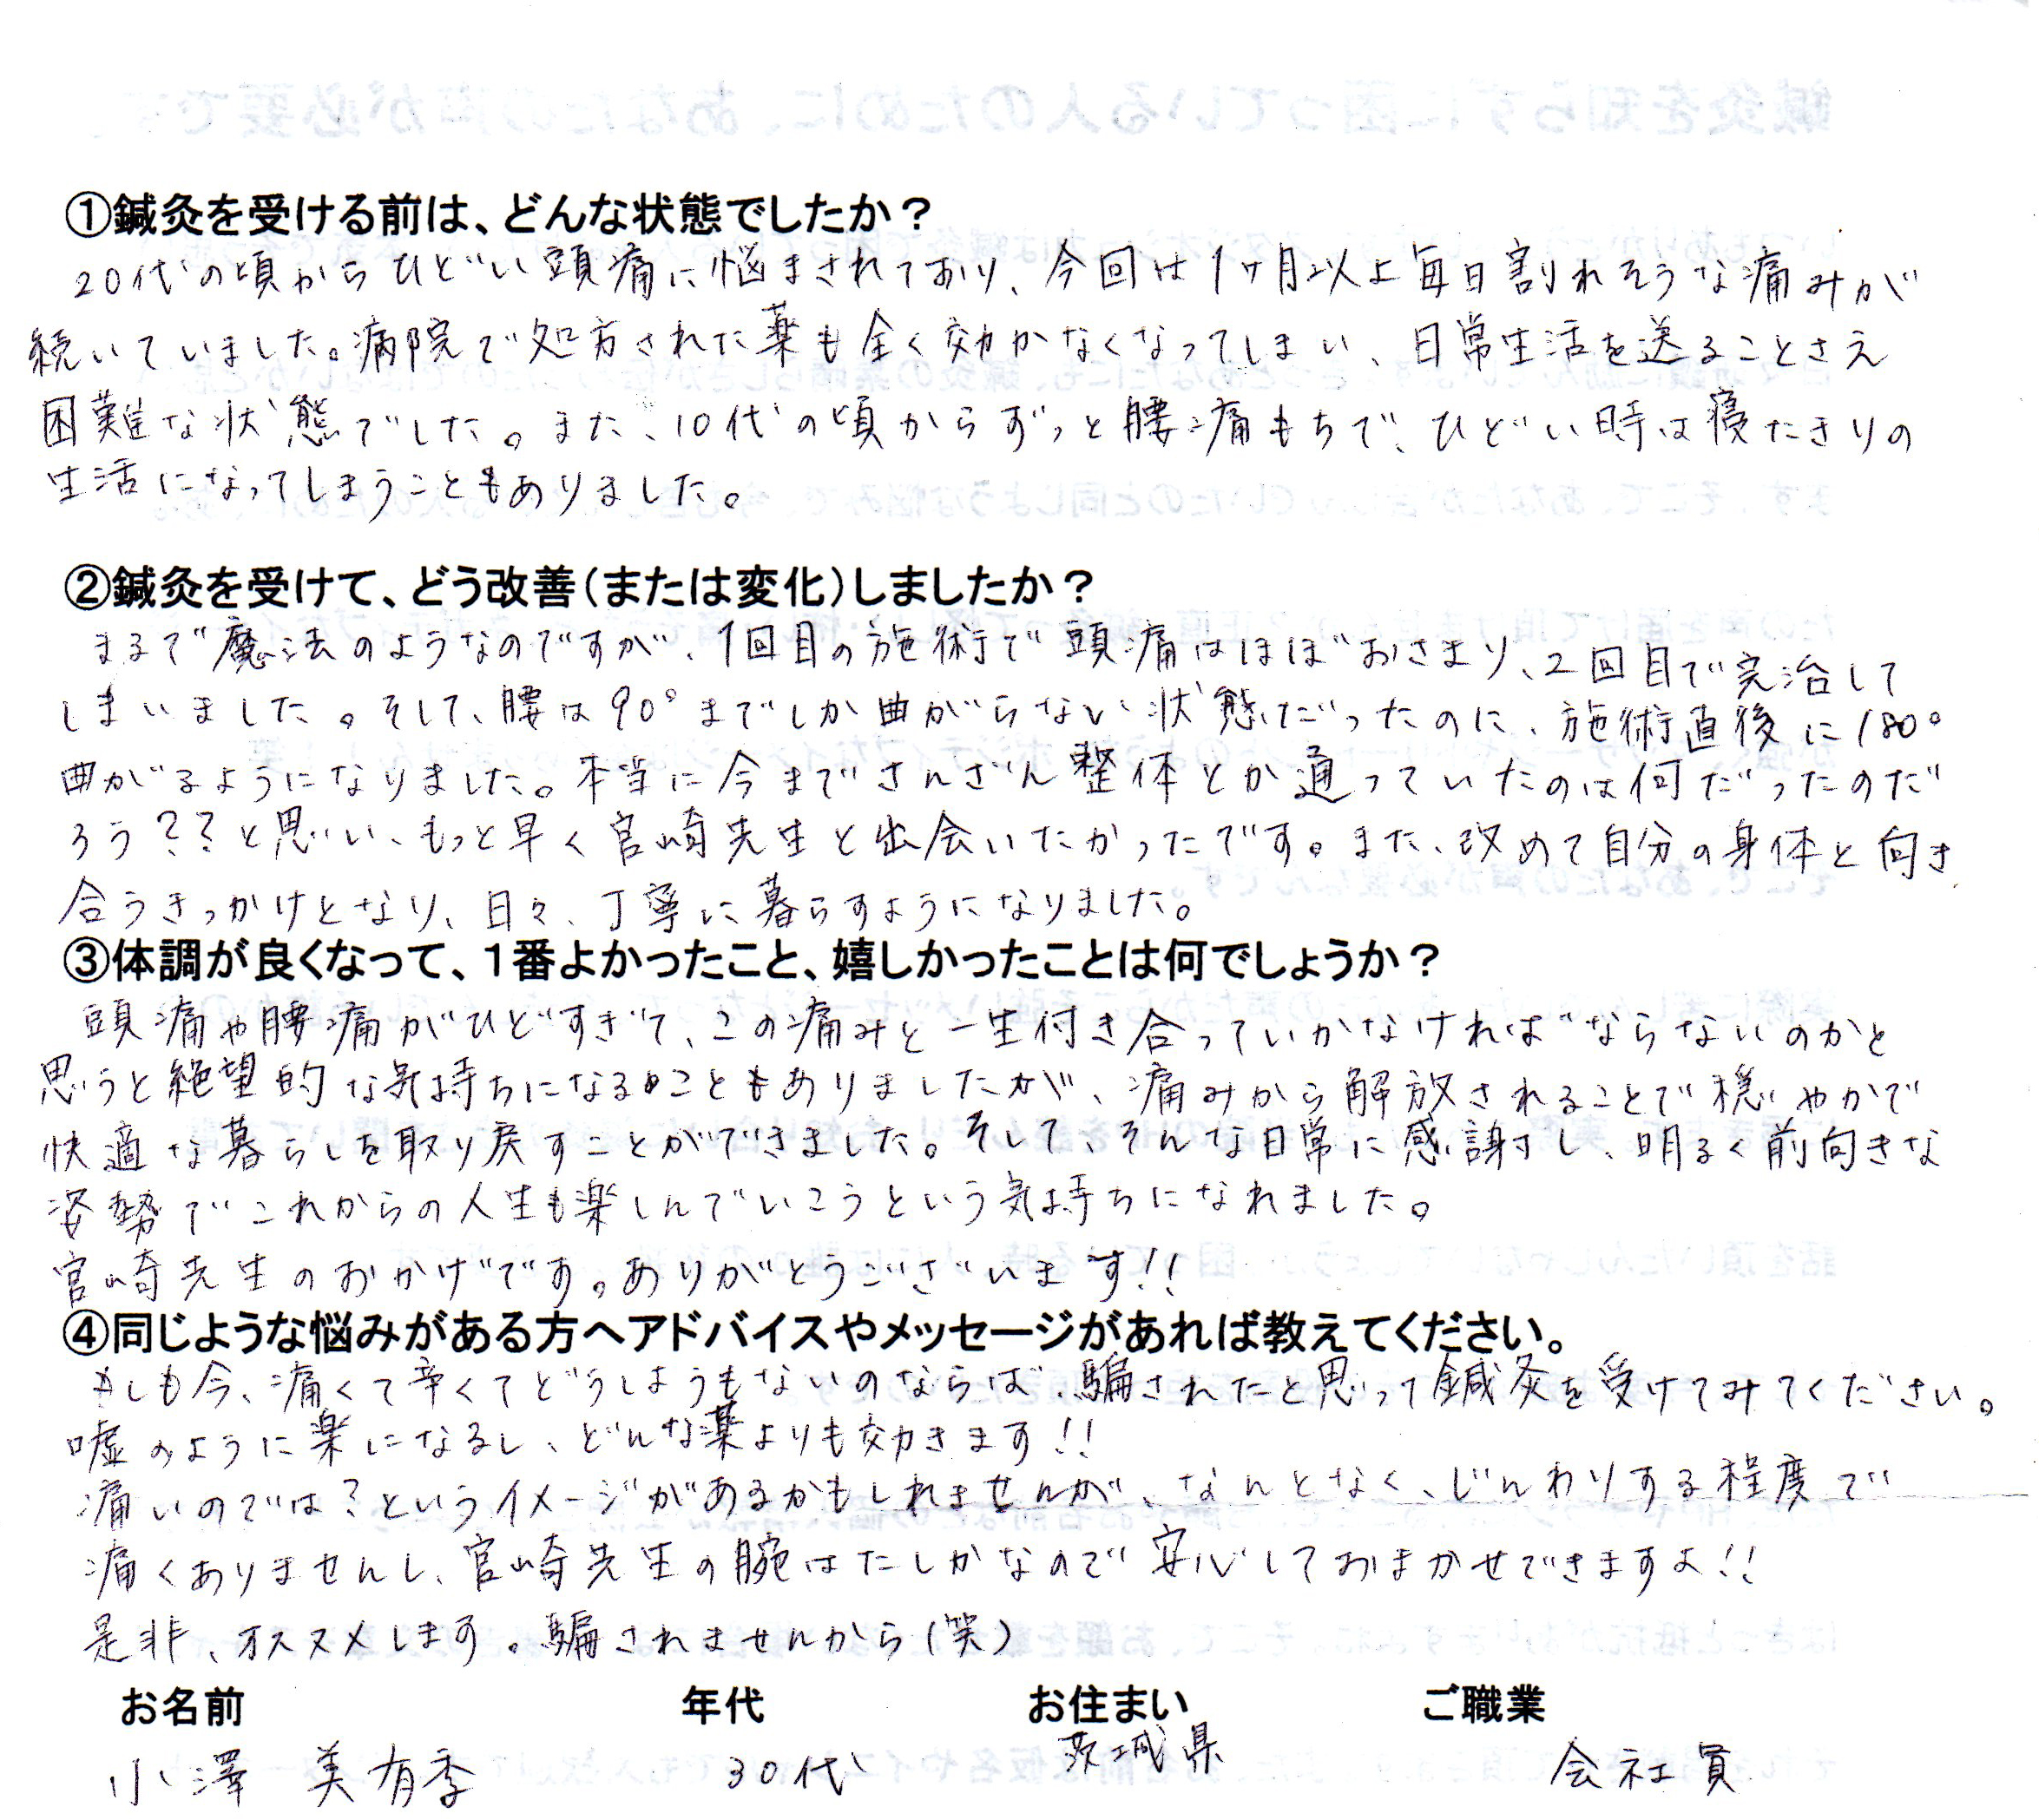 ①鍼灸を受ける前は、どんな状態でしたか？
20代の頃からひどい頭痛に悩まされており、今回は1ヶ月以上毎日割れそうな痛みが
続いていました。病院で処方された薬も全く効かなくなってしまい、日常生活を送ることさえ
困難な状態でした。また、10代の頃からずっと腰痛もちで、ひどい時は寝たきりの
生活になってしまうこともありました。
②鍼灸を受けて、どう改善（または変化）しましたか？
まるで魔法のようなのですが、1回目の施術で頭痛はほぼおさまり、2回目で完治して
しまいました。そして、腰は90°までしか曲がらない状態だったのに、施術直後に180°
曲がるようになりました。本当に今までさんざん整体とか通っていたのは何だったのだ
ろう？？と思い、もっと早く宮崎先生と出会いたかったです。また、改めて自分の身体と向き
合うきっかけとなり、日々、丁寧に暮らすようになりました。
③体調が良くなって、１番よかったこと、嬉しかったことは何でしょうか？
頭痛や腰痛がひどすぎて、この痛みと一生付き合っていかなければならないのかと
思うと絶望的な気持ちになることもありましたが、痛みから解放されることで穏やかで
快適な暮らしを取り戻すことができました。そして、そんな日常に感謝し、明るく前向きな
姿勢でこれからの人生も楽しんでいこうという気持ちになれました。
宮崎先生のおかげです。ありがとうございます!!
④同じような悩みがある方へアドバイスやメッセージがあれば教えてください。
もしも今、痛くて辛くてどうしようもないのならば、騙されたと思って鍼灸を受けてみてください。
嘘のように楽になるし、どんな薬よりも効きます!!
痛いのでは？というイメージがあるかもしれませんが、なんとなく、じんわりする程度で
痛くありませんし、宮崎先生の腕はたしかなので安心しておまかせできますよ!!
是非、オススメします。騙されませんから（笑）
お名前 年代 お住まい ご職業
小澤 美有季 30代 茨城県 会社員